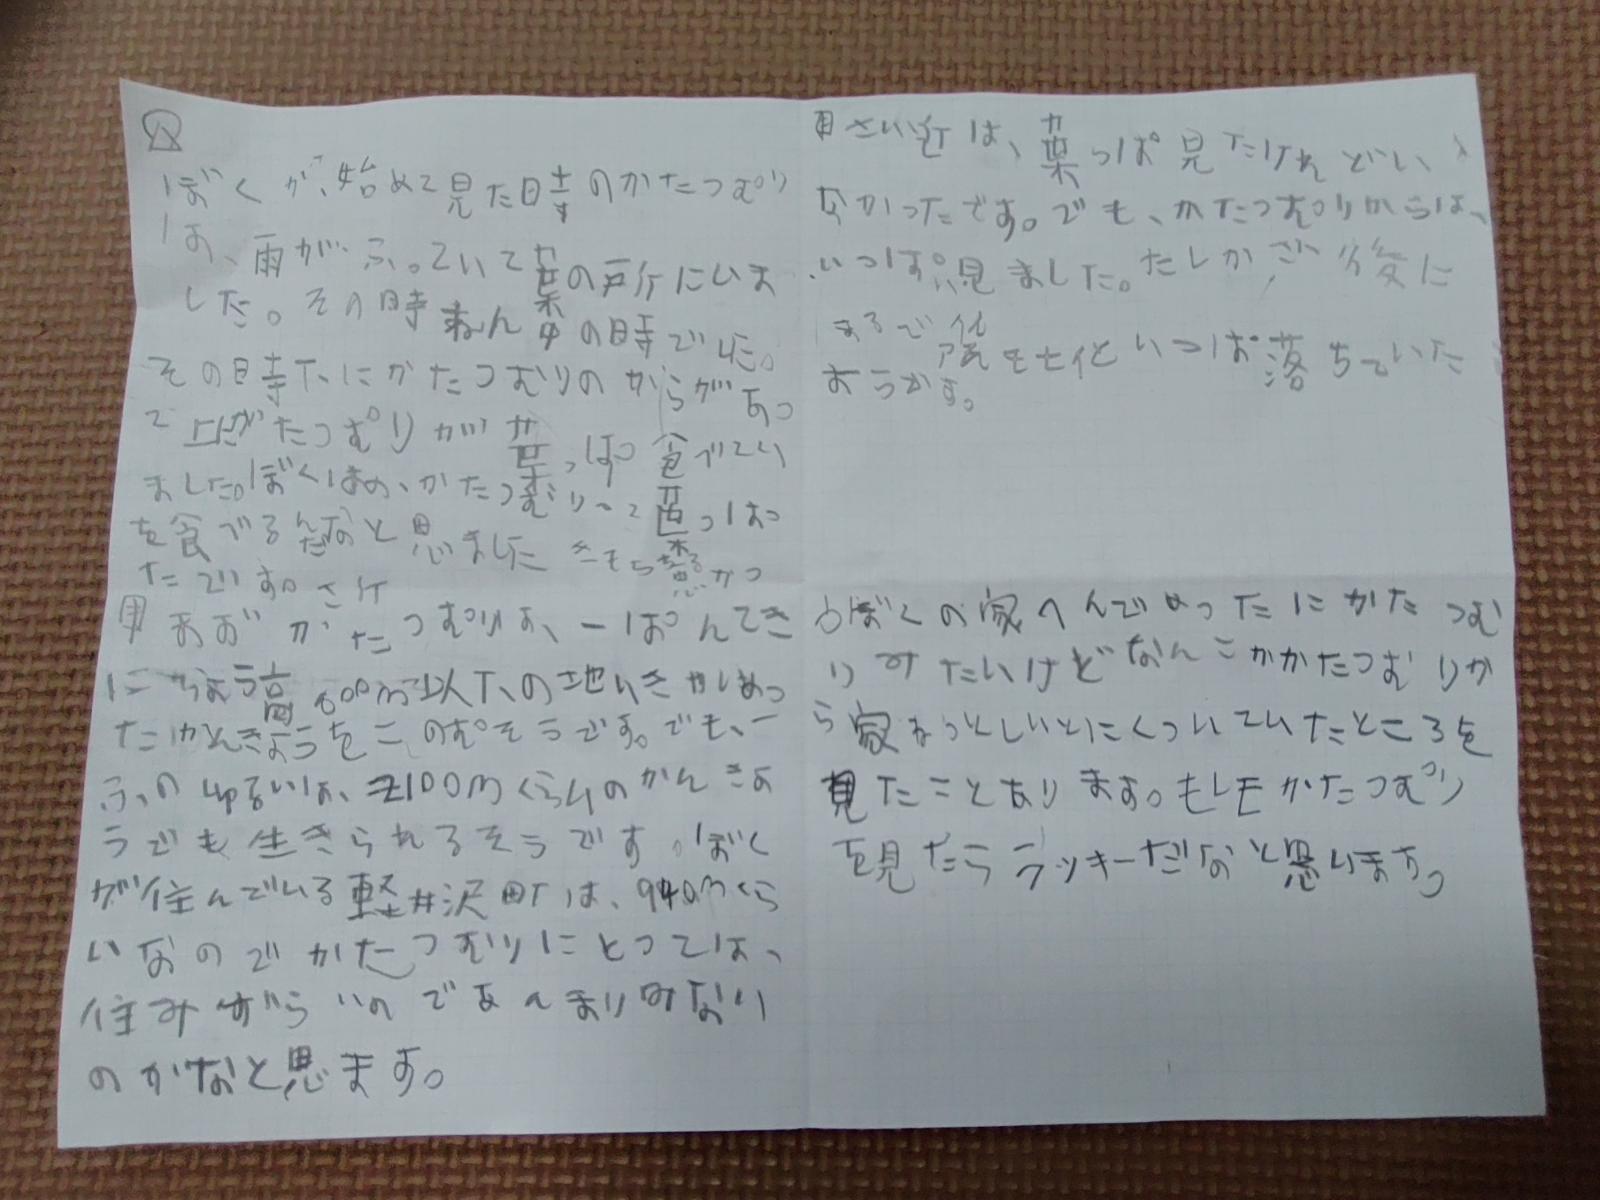 ぼくが始めて見た時のかたつむり
は、雨がふっていて葉の所にいま
した。その時ねん中の時でした。
その時下にかたつむりのからがあっ
て上がたつむりが葉っぱ食べてい
ました。ぼくはあ、かたつむりって葉っぱ
を食べるんだなと思ました きもち悪かっ
たでいす。
かたつむりは、一ぱんてき
高 600m以下の地いきがしめっ
たかんきょうをこのむそうです。でも、一
ふのしゅるいは、2100mくらいのかんきょ
うでも生きられるそうです。ぼく
が住んでいる軽井沢町は、940mくら
いなのでかたつむりにとっては、
住みずらいのであんまりみない
のかなと思ます。
さい近は、葉っぱ見たけれどい
なかったです。でも、かたつむりからは、
いっぱい見ました。たしかご後に
まるで化 いっぱ落ちていた
ようかす。
ぼくの家へんでめったにかたつむ
りみたいけどなんこかかたつむりか
ら家 にくっいていたところを
見たことあります。もしもかたつむり
を見たらラッキーだなと思います。